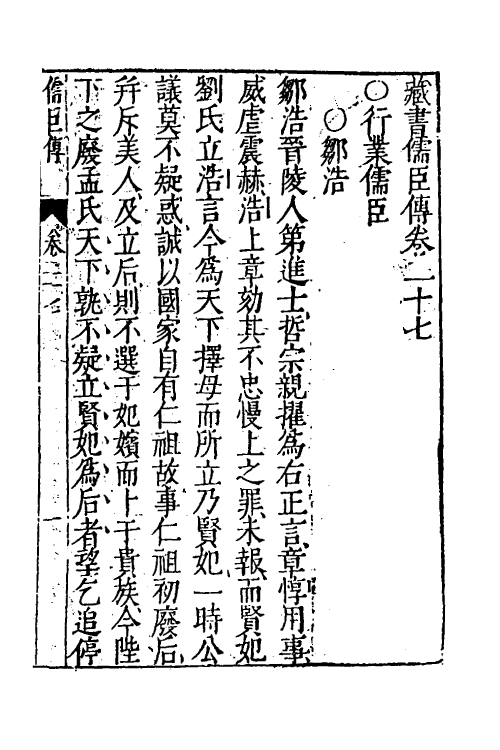 藏書儒臣傳卷二十七
○行業儒臣
○鄒浩
鄒浩晉陵人第進士哲宗親擢為右正言章惇用事
威虐震赫浩上章劾其不忠慢上之罪未報而賢妃
劉氏立浩言今為天下擇母而所立乃賢妃一時公
議莫不疑惑誠以國家自有仁祖故事仁祖初廢后
并斥美人及立后則不選于妃嬪而卜于貴族今陛
下之廢孟氏天下孰不疑立賢妃為后者望乞追停
儒臣傳 卷二七 一